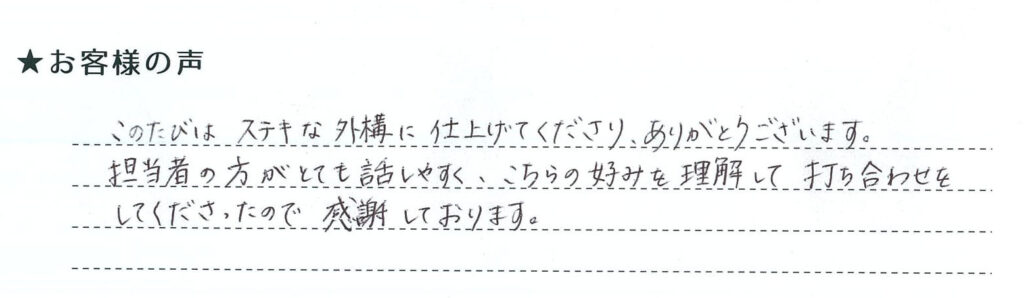 ★お客様の声
このたびは ステキな外構に 仕上げてくださり、ありがとうございます。
担当者の方がとても話しやすく、こちらの好みを理解して 打ち合わせを
してくださったので 感謝しております。